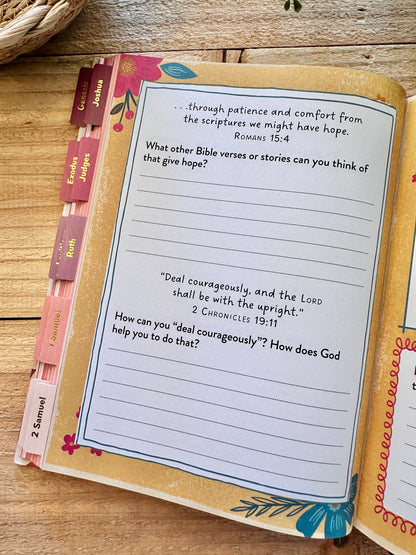 Genesis
Joshua
Exodus
Judges
Ruth
1 Samuel
2 Samuel
...through patience and comfort from
the scriptures we might have hope.
ROMANS 15:4
What other Bible verses or stories can you think of
that give hope?
"Deal courageously, and the LORD
shall be with the upright."
2 CHRONICLES 19:11
How can you "deal courageously"? How does God
help you to do that?